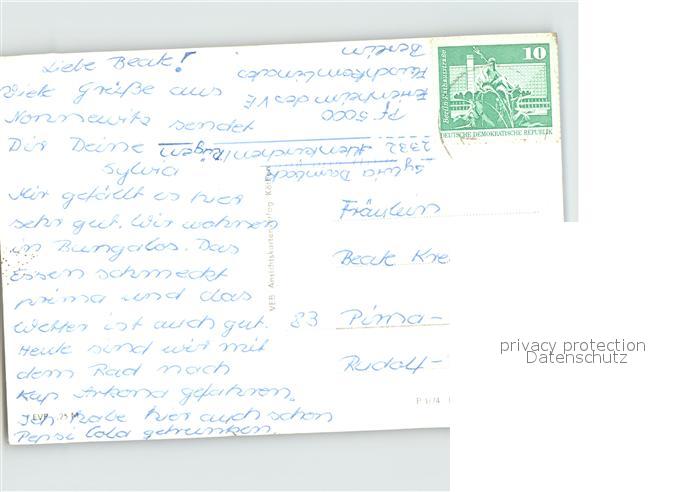 Liebe Beate!
Viele Grüße aus
Nonnewitz sendet
Dir Deine
Sylvia
Mir gefällt es hier
sehr gut. Wir wohnen
in Bungalos. Das
Essen schmeckt
prima und das
Wetter ist auch gut.
Heute sind wir mit
dem Rad nach
Kap Arkona gefahren.
Ich habe hier auch schon
Pepsi Cola getrunken.
Sylvia
2332 Altenkirchen/Rügen
PF 5000
Ferienheim des VE
Fleischkombinates
Berlin
10
Berlin, Rathausstraße
DEUTSCHE DEMOKRATISCHE REPUBLIK
VEB Ansichtskartenverlag Köthen
Fräulein
Beate Kre
83 Pirna-
Rudolf-
EVP
P 1/74
privacy protection
Datenschutz